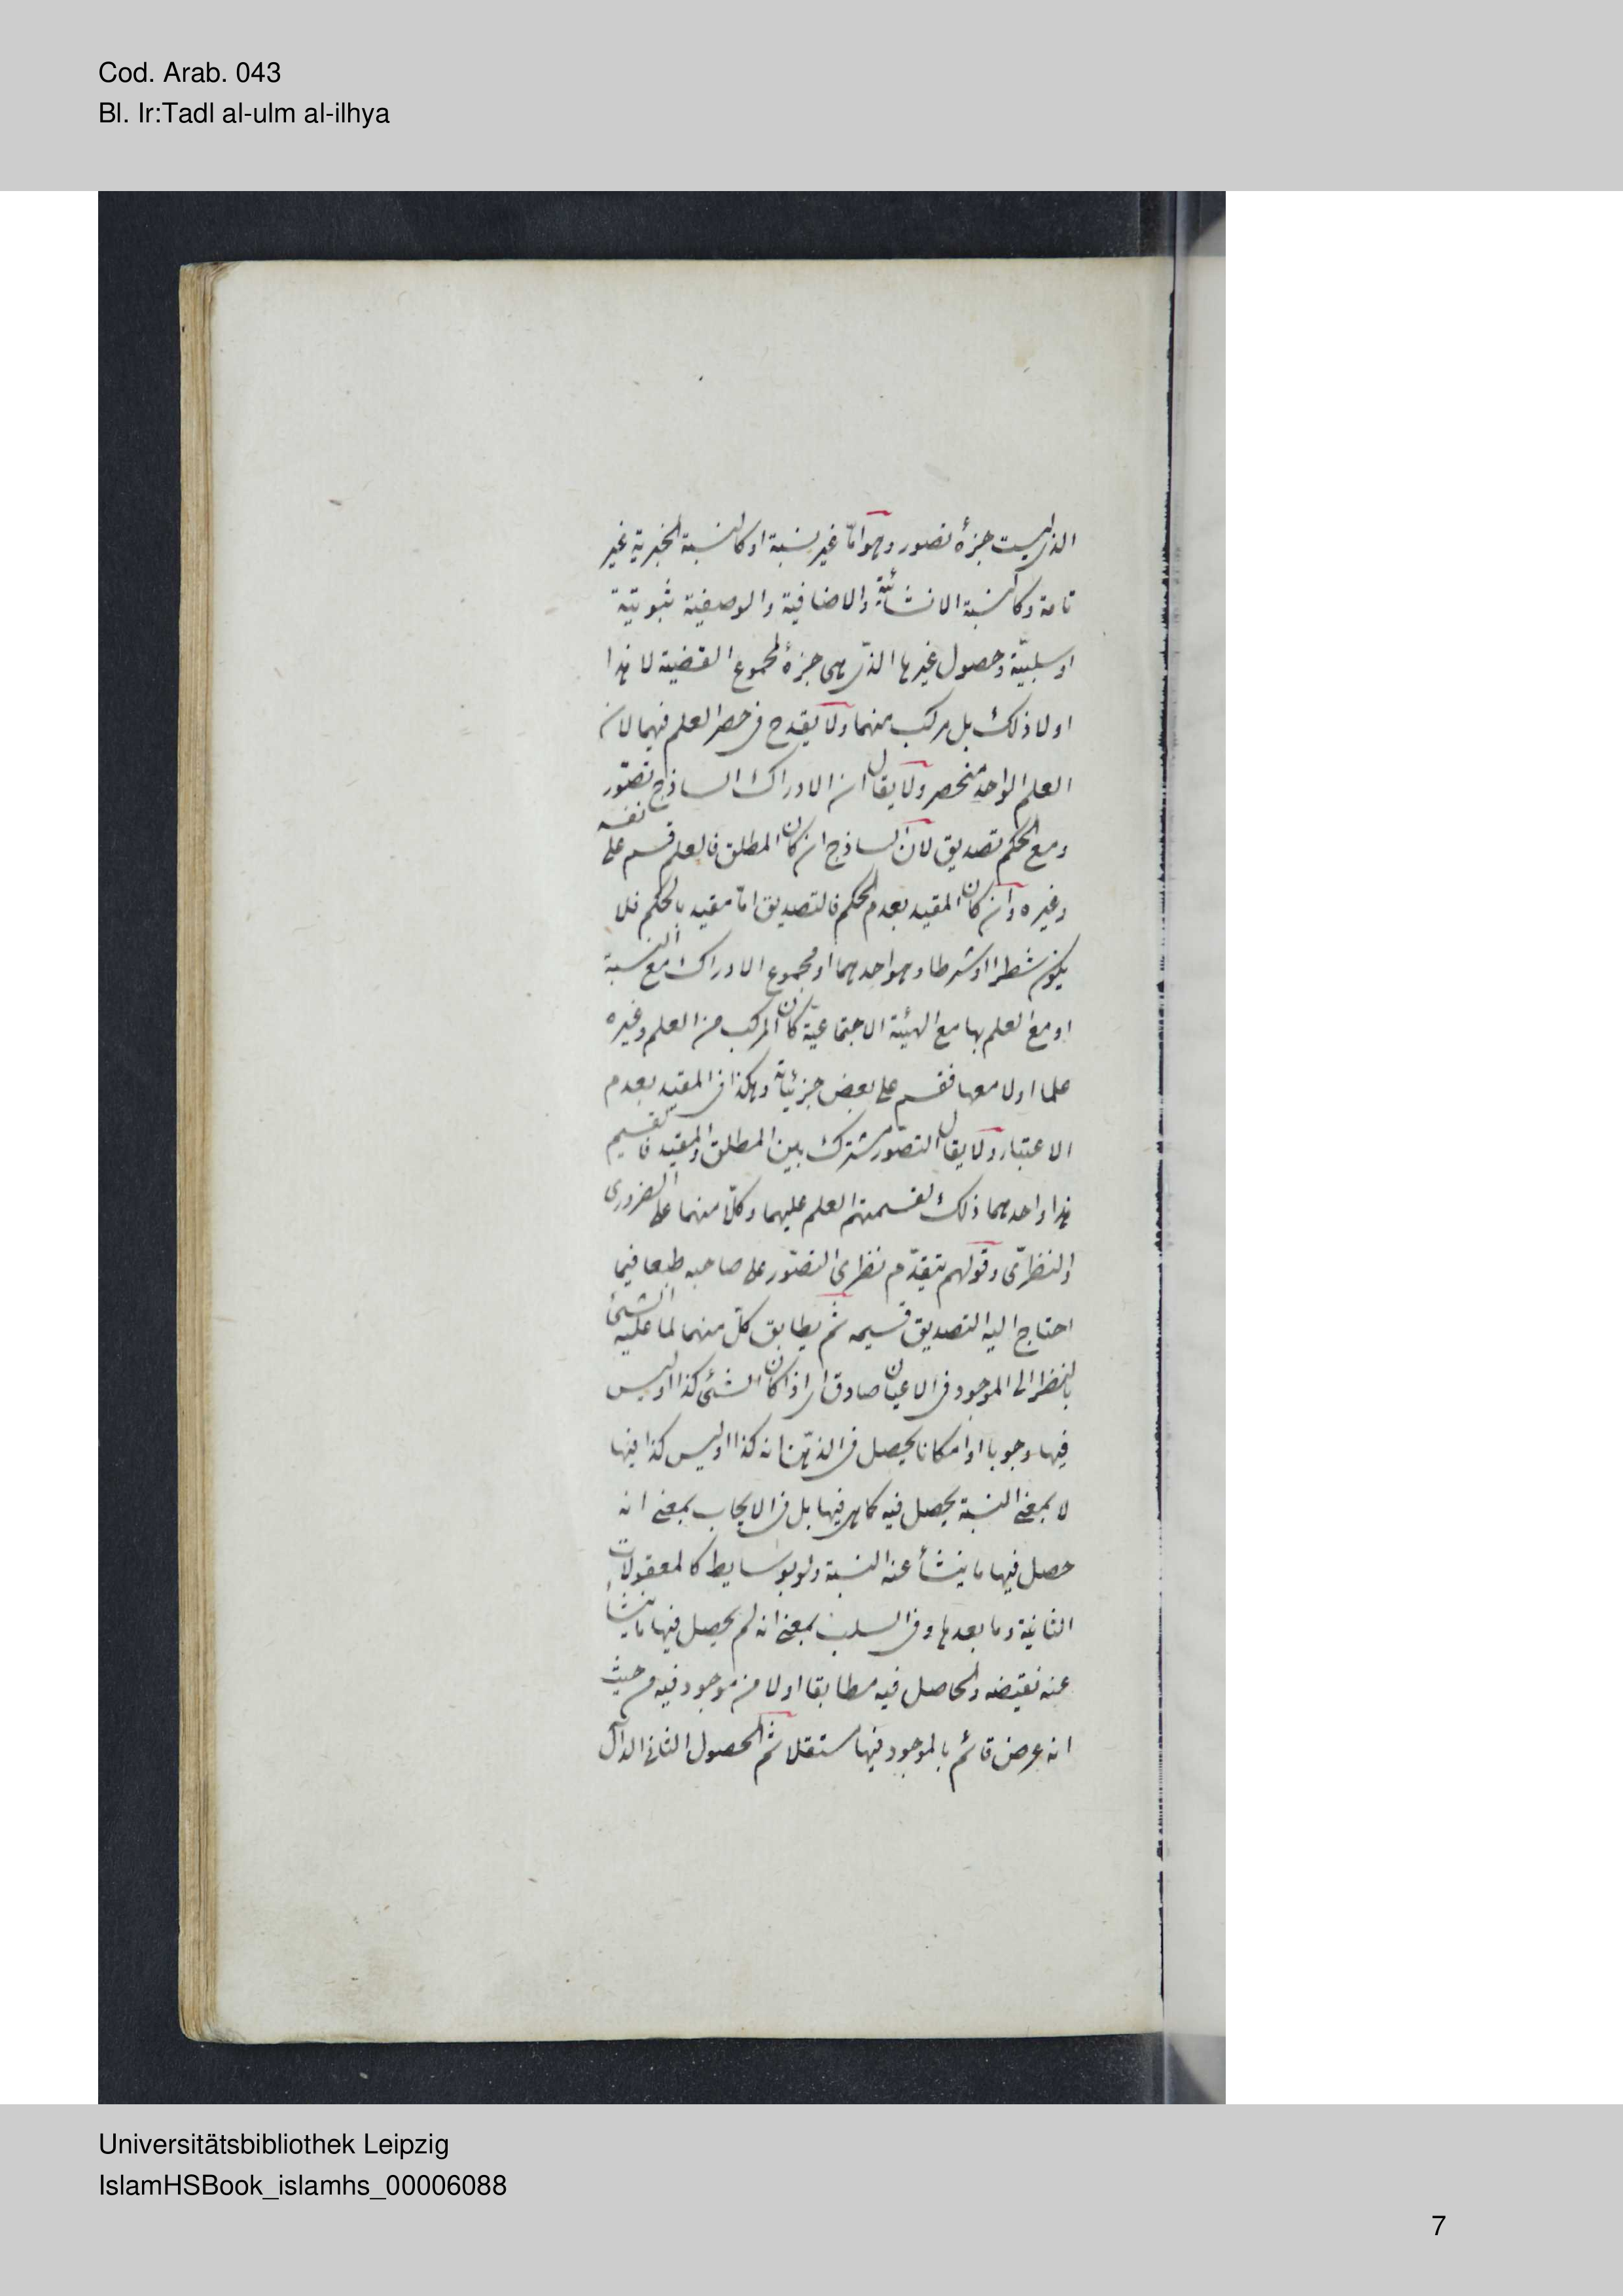 Cod. Arab. 043
Bl. Ir:Tadl al-ulm al-ilhya
الذى ليست جزءه تصور وهو امّا غير نسبة او كالنسبة الخبرية غير
تامة وكالنسبة الانشائية والاضافية والوصفية ثبوتية
او سلبيّة وحصول غيرها الذى هى جزءه لمجموع القضية لا هذا
او لا ذلك بل مركب منهما ولا يقدح فى حصر العلم فيهما لان
العلم الواحد منحصر ولا يقال ان الادراك الساذج تصوّر
ومع الحكم تصديق لان الساذج ان كان المطلق فالعلم قسم على نفسه
وغيره وان كان المقيد بعدم الحكم فالتصديق امّا مقيد بالحكم فلا
يكون شطرا او شرطا وهو احدهما او مجموع الادراك مع النسبة
او مع العلم بها مع الهيئة الاجتماعيّة كان المركب من العلم وغيره
علما او لا معها فقسم على بعض جزئياته وهكذا فى المقيد بعدم
الاعتبار ولا يقال التصوّر مشترك بين المطلق والمقيد فالقسيم
هذا واحدهما ذلك لقسمتهم العلم عليهما وكلّا منهما على الضرورى
والنظرىّ وقولهم بتقدّم نظرى التصوّر على صاحبه طبعا فيما
احتاج اليه التصديق قسيمه ثم يطابق كلّ منهما لما عليه الشئ
بالنظر الى الموجود فى الاعيان صادق اى اذا كان الشئ كذا او ليس
فيها وجوبا او امكانا يحصل فى الذهن انه كذا او ليس كذا فيها
لا بمعنى النسبة يحصل فيه كما هى فيها بل فى الايجاب بمعنى انه
حصل فيها ما ينشأ عنه النسبة ولو بوسايط كالمعقولات
الثانية وما بعدها وفى السلب بمعنى انه لم يحصل فيها ما ينشأ
عنه نقيضه والحاصل فيه مطابقا او لا من موجود فيه من حيث
انه عرض قائم بالموجود فيها مستقلا ثم الحصول الثانى الدالّ
Universitätsbibliothek Leipzig
IslamHSBook_islamhs_00006088
7